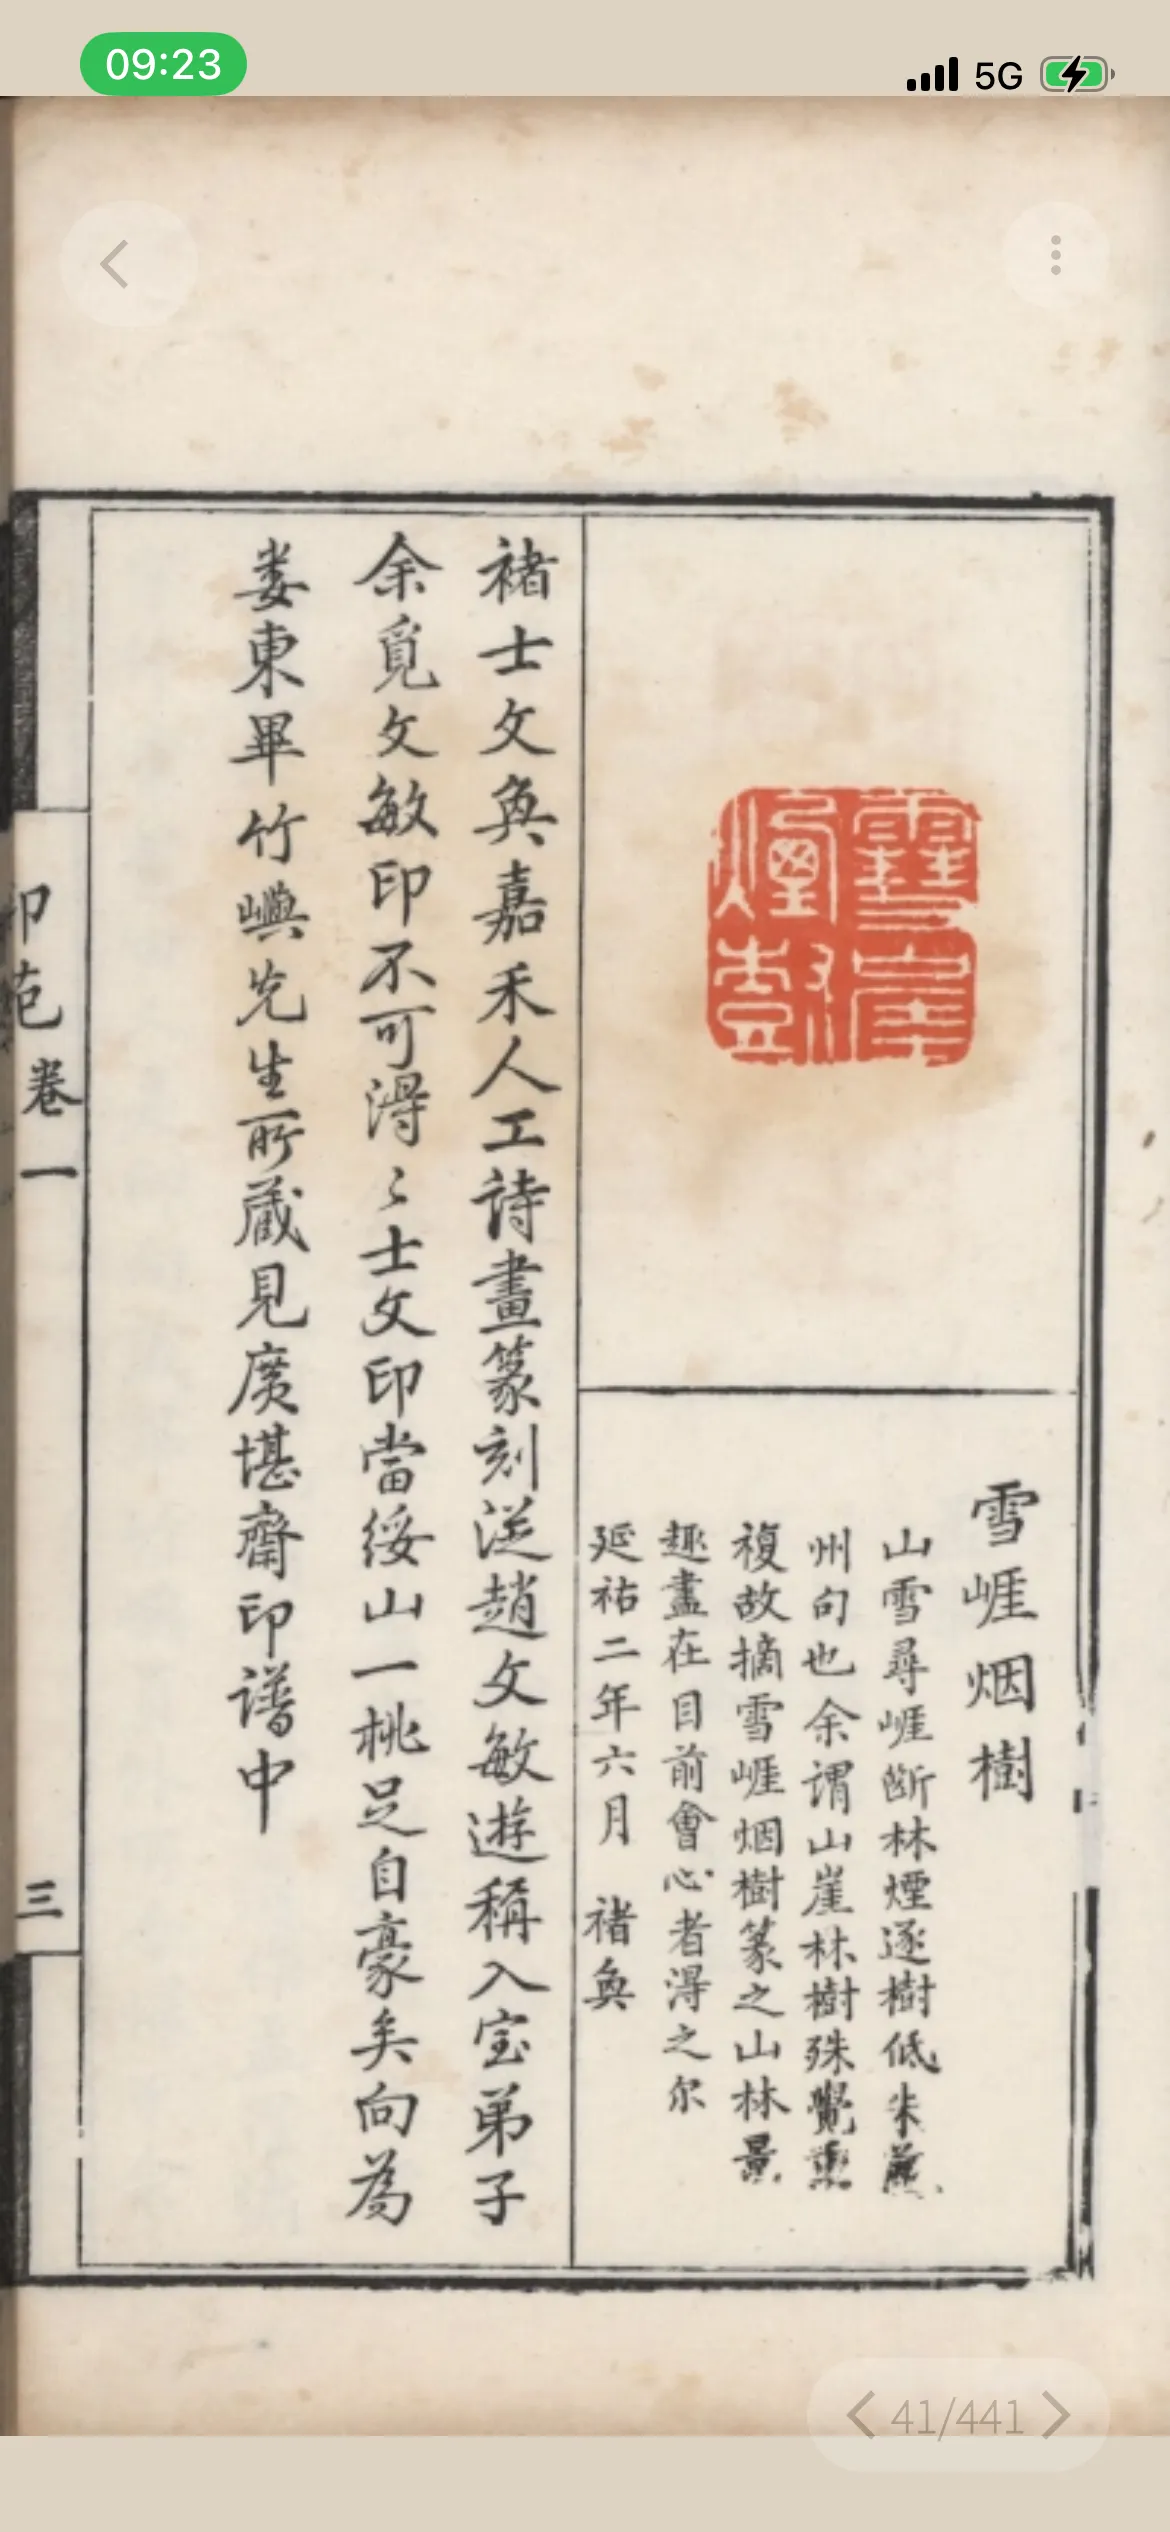 09:23
5G
雪崕烟樹
山雪尋崕斷林煙逐樹低朱
州句也余谓山崖林樹殊覺重
複故摘雪崕烟樹篆之山林景
趣盡在目前會心者淂之尔
延祐二年六月 褚奐
褚士文奐嘉禾人工诗畫篆刻従趙文敏遊稱入宝弟子
余覓文敏印不可淂〻士文印當綏山一桃足自豪矣向為
娄東畢竹嶼先生所蔵見廣堪齋印谱中
卷一
三
41/441